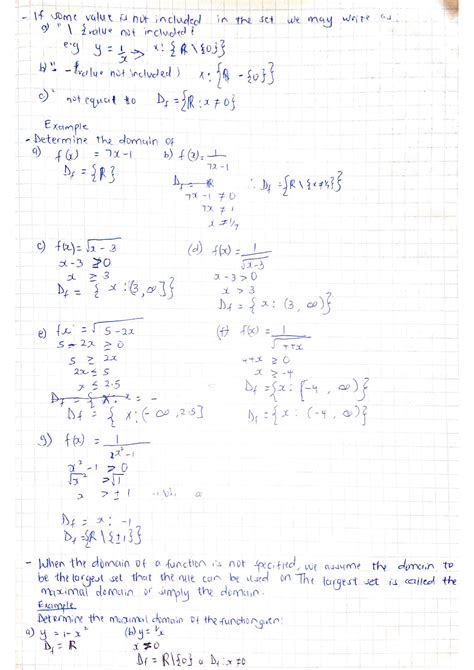 - If some value is not included in the set we may write as:
a) "\ {value not included}
e.g y = 1/x → x: {R \ {0}}
b) " - {value not included} x: {R - {0}}
c) " not equal to Df = {R : x ≠ 0}
Example
- Determine the domain of
a) f(x) = 7x-1
Df = {R}
b) f(x) = 1/(7x-1)
Df = R
7x-1 ≠ 0
7x ≠ 1
x ≠ 1/7
∴ Df = {R \ {x ≠ 1/7}}
c) f(x) = √(x-3)
x-3 ≥ 0
x ≥ 3
Df = { x : (3, ∞]}
(d) f(x) = 1/√(x-3)
x-3 > 0
x > 3
Df = { x : (3, ∞)}
e) fx = √(5-2x)
5-2x ≥ 0
5 ≥ 2x
2x ≤ 5
x ≤ 2.5
Df = { x : x = -
Df = { x : (-∞, 2.5]
(f) f(x) = 1/√(4+x)
4+x ≥ 0
x ≥ -4
Df = {x : [-4, ∞)}
Df = {x : (-4, ∞)}
g) f(x) = 1/(x²-1)
x²-1 > 0
√x² > √1
x > ±1
Df = x : -1
Df = {R \ {±1}}
- When the domain of a function is not specified, we assume the domain to
be the largest set that the rule can be used on The largest set is called the
maximal domain or simply the domain.
Example
Determine the maximal domain of the function given:
a) y = 1-x²
Df = R
(b) y = 1/x
x ≠ 0
Df = R\{0} or Df : x ≠ 0